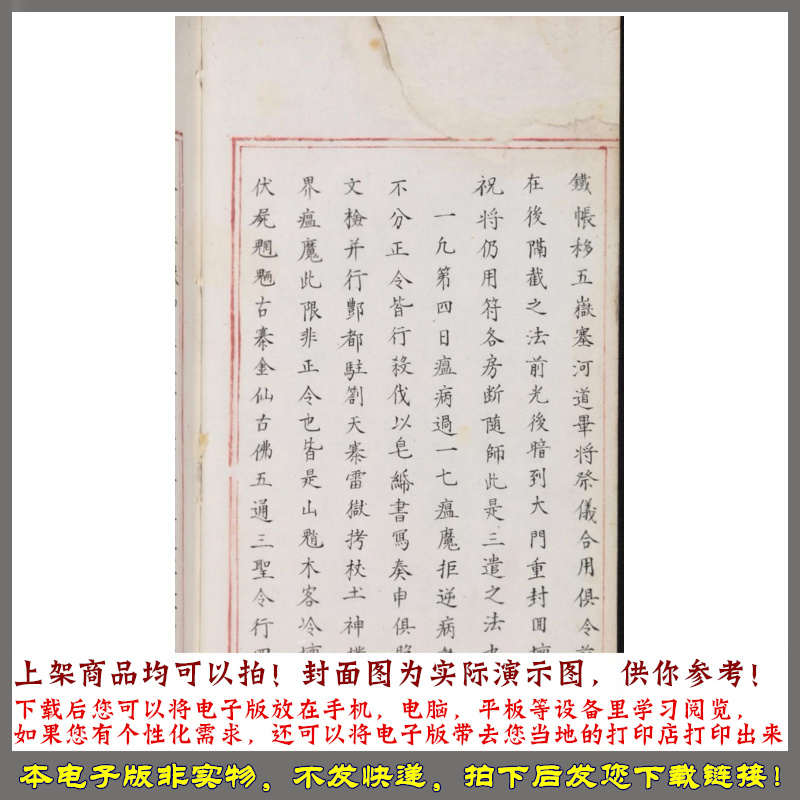 鐵帳移五嶽塞河道畢將祭儀合用俱令
在後隔截之法前光後暗到大門重封回壇
祝将仍用符各房断随師此是三遣之法
一凢第四日瘟病過一七瘟魔拒逆病
不分正令皆行殺伐以皂綈書寫奏申俱
文檢并行酆都駐劄天寨雷獄拷杖土神
界瘟魔此限非正令也皆是山魈木客冷壇
伏屍古寨金仙古佛五通三聖令行
上架商品均可以拍！封面图为实际演示图，供你参考！
下载后您可以将电子版放在手机，电脑，平板等设备里学习阅览，
如果您有个性化需求，还可以将电子版带去您当地的打印店打印出来
本电子版非实物，不发快递，拍下后发您下载链接！